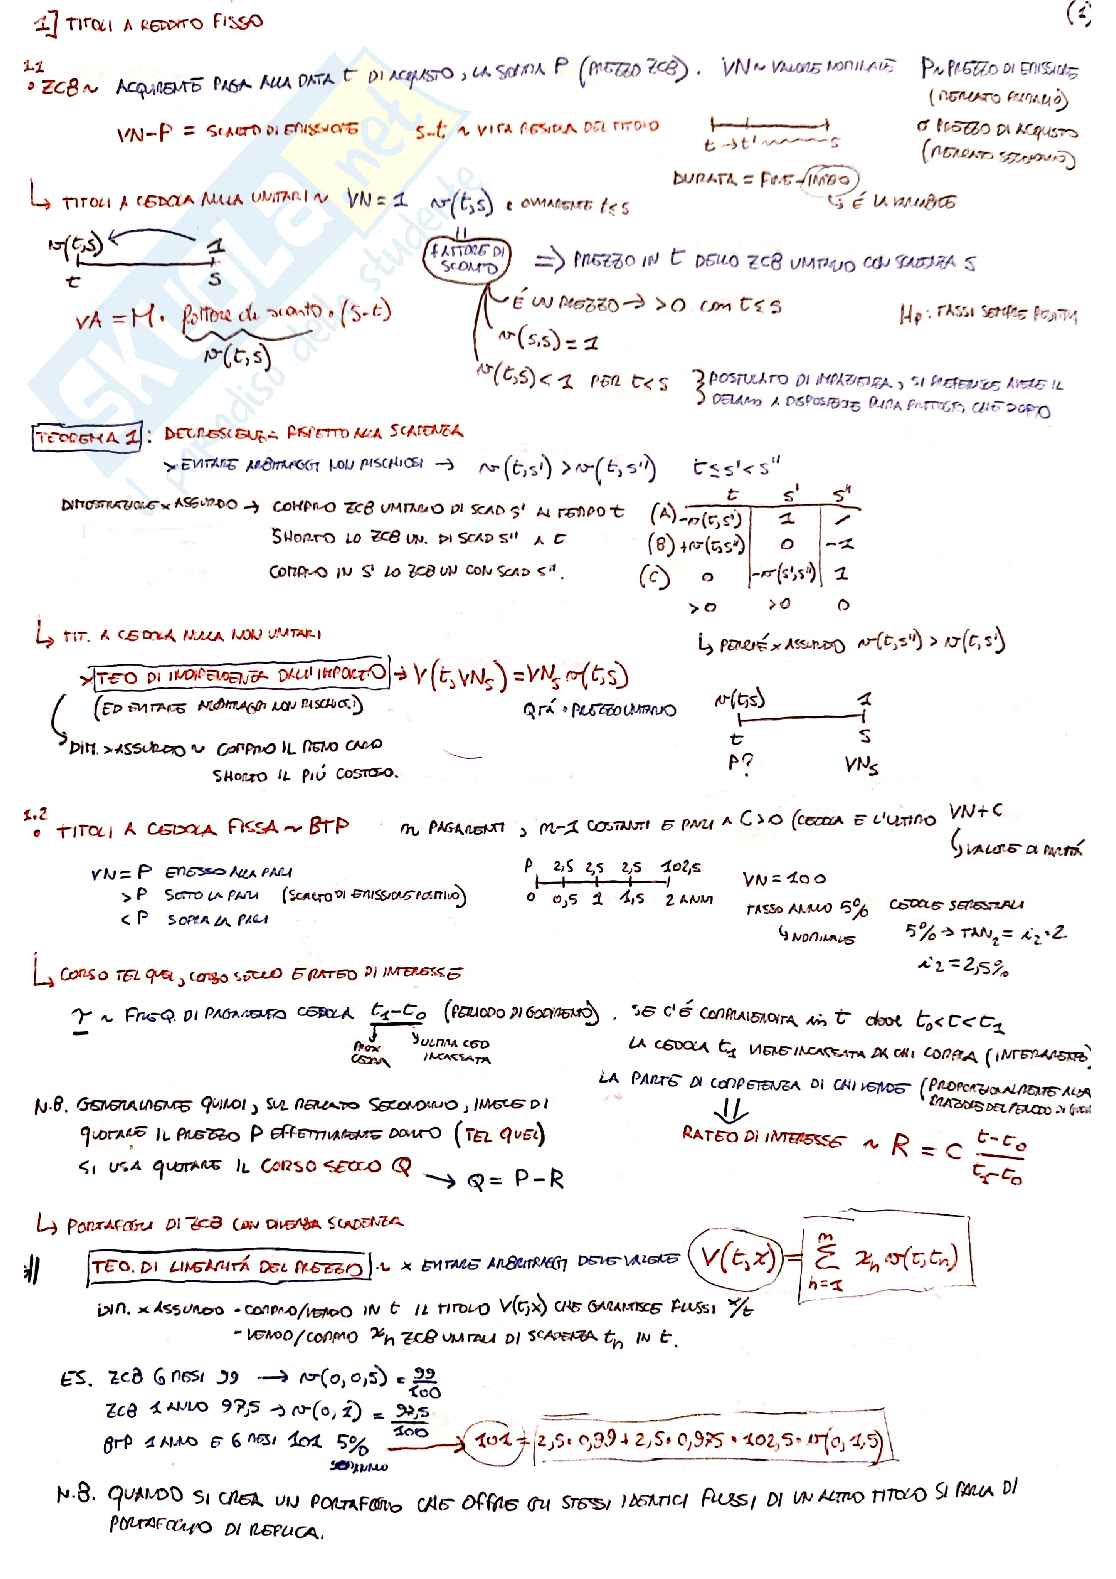 1] TITOLI A REDDITO FISSO
(1)
1.1
• ZCB ~ ACQUIRENTE PAGA ALLA DATA t DI ACQUISTO, LA SOMMA P (PREZZO ZCB). VN ~ VALORE NOMINALE P ~ PREZZO DI EMISSIONE
(MERCATO PRIMARIO)
VN-P = SCARTO DI EMISSIONE s-t ~ VITA RESIDUA DEL TITOLO
t → t' s
O PREZZO DI ACQUISTO
(MERCATO SECONDARIO)
DURATA = FINE - INIZIO
↳ É LA VARIABILE
↳ TITOLI A CEDOLA NULLA UNITARI ~ VN=1 v(t,s) e OVVIAMENTE t≤s
v(t,s) 1
t s
FATTORE DI SCONTO ⇒ PREZZO IN t DELLO ZCB UNITARIO CON SCADENZA S
É UN PREZZO → >0 con t≤s
Hp: TASSI SEMPRE POSITIVI
VA = M. fattore di sconto. (s-t)
v(t,s)
v(s,s) = 1
v(t,s) < 1 PER t<s } POSTULATO DI IMPAZIENZA, SI PREFERISCE AVERE IL
DENARO A DISPOSIZIONE PRIMA PIUTTOSTO CHE DOPO
TEOREMA 1: DECRESCENZA RISPETTO ALLA SCADENZA
> EVITARE ARBITRAGGI NON RISCHIOSI → v(t,s') > v(t,s'') t≤s'<s''
DIMOSTRAZIONE x ASSURDO → COMPRO ZCB UNITARIO DI SCAD S' AL TEMPO t
SHORTO LO ZCB UN. DI SCAD S'' A t
COMPRO IN S' LO ZCB UN CON SCAD S''.
t s' s''
(A) -v(t,s') 1 /
(B) +v(t,s'') 0 -1
(C) 0 -v(s',s'') 1
>0 >0 0
↳ PERCHÉ x ASSURDO v(t,s'') > v(t,s')
↳ TIT. A CEDOLA NULLA NON UNITARI
> TEO DI INDIPENDENZA DALL'IMPORTO → V(t,VNs) = VNs v(t,s)
(ED EVITARE ARBITRAGGI NON RISCHIOSI)
QTÁ • PREZZO UNITARIO
v(t,s) 1
t s
P? VNs
DIM. > ASSURDO ~ COMPRO IL MENO CARO
SHORTO IL PIÚ COSTOSO.
1.2
• TITOLI A CEDOLA FISSA ~ BTP m PAGAMENTI, m-1 COSTANTI E PARI A C>0 (CEDOLA E L'ULTIMO VN+C
↳ VALORE DI PARITÁ
VN = P EMESSO ALLA PARI
> P SOTTO LA PARI (SCARTO DI EMISSIONE POSITIVO)
< P SOPRA LA PARI
P 2,5 2,5 2,5 102,5
0 0,5 1 1,5 2 ANNI
VN = 100
TASSO ANNUO 5% CEDOLE SEMESTRALI
↳ NOMINALE 5% → TAN₂ = i₂·2
i₂ = 2,5%
↳ CORSO TEL QUEL, CORSO SECCO E RATEO DI INTERESSE
γ ~ FREQ. DI PAGAMENTO CEDOLA t₁-t₀ (PERIODO DI GODIMENTO). SE C'É COMPRAVENDITA in t dove t₀<t<t₁
PROX CEDOLA ULTIMA CED INCASSATA
LA CEDOLA t₁ VIENE INCASSATA DA CHI COMPRA (INTERAMENTE)
LA PARTE DI COMPETENZA DI CHI VENDE (PROPORZIONALMENTE ALLA
FRAZIONE DEL PERIODO DI
N.B. GENERALMENTE QUINDI, SUL MERCATO SECONDARIO, INVECE DI
QUOTARE IL PREZZO P EFFETTIVAMENTE DOVUTO (TEL QUEL)
SI USA QUOTARE IL CORSO SECCO Q → Q = P - R
RATEO DI INTERESSE ~ R = C (t-t₀)/(t₁-t₀)
↳ PORTAFOGLI DI ZCB CON DIVERSA SCADENZA
TEO. DI LINEARITÁ DEL PREZZO ~ x EVITARE ARBITRAGGI DEVE VALERE V(t,x) = Σ(h=1, m) xh v(t,th)
DIM. x ASSURDO - COMPRO/VENDO IN t IL TITOLO V(t,x) CHE GARANTISCE FLUSSI x/t
- VENDO/COMPRO xh ZCB UNITARI DI SCADENZA th IN t.
ES. ZCB 6 MESI 99 → v(0,0,5) = 99/100
ZCB 1 ANNO 97,5 → v(0,1) = 97,5/100
BTP 1 ANNO E 6 MESI 101 5% → 101 = 2,5·0,99 + 2,5·0,975 + 102,5·v(0,1,5)
N.B. QUANDO SI CREA UN PORTAFOGLIO CHE OFFRE GLI STESSI IDENTICI FLUSSI DI UN ALTRO TITOLO SI PARLA DI
PORTAFOGLIO DI REPLICA.
SKUOLA.net
il paradiso dello studente